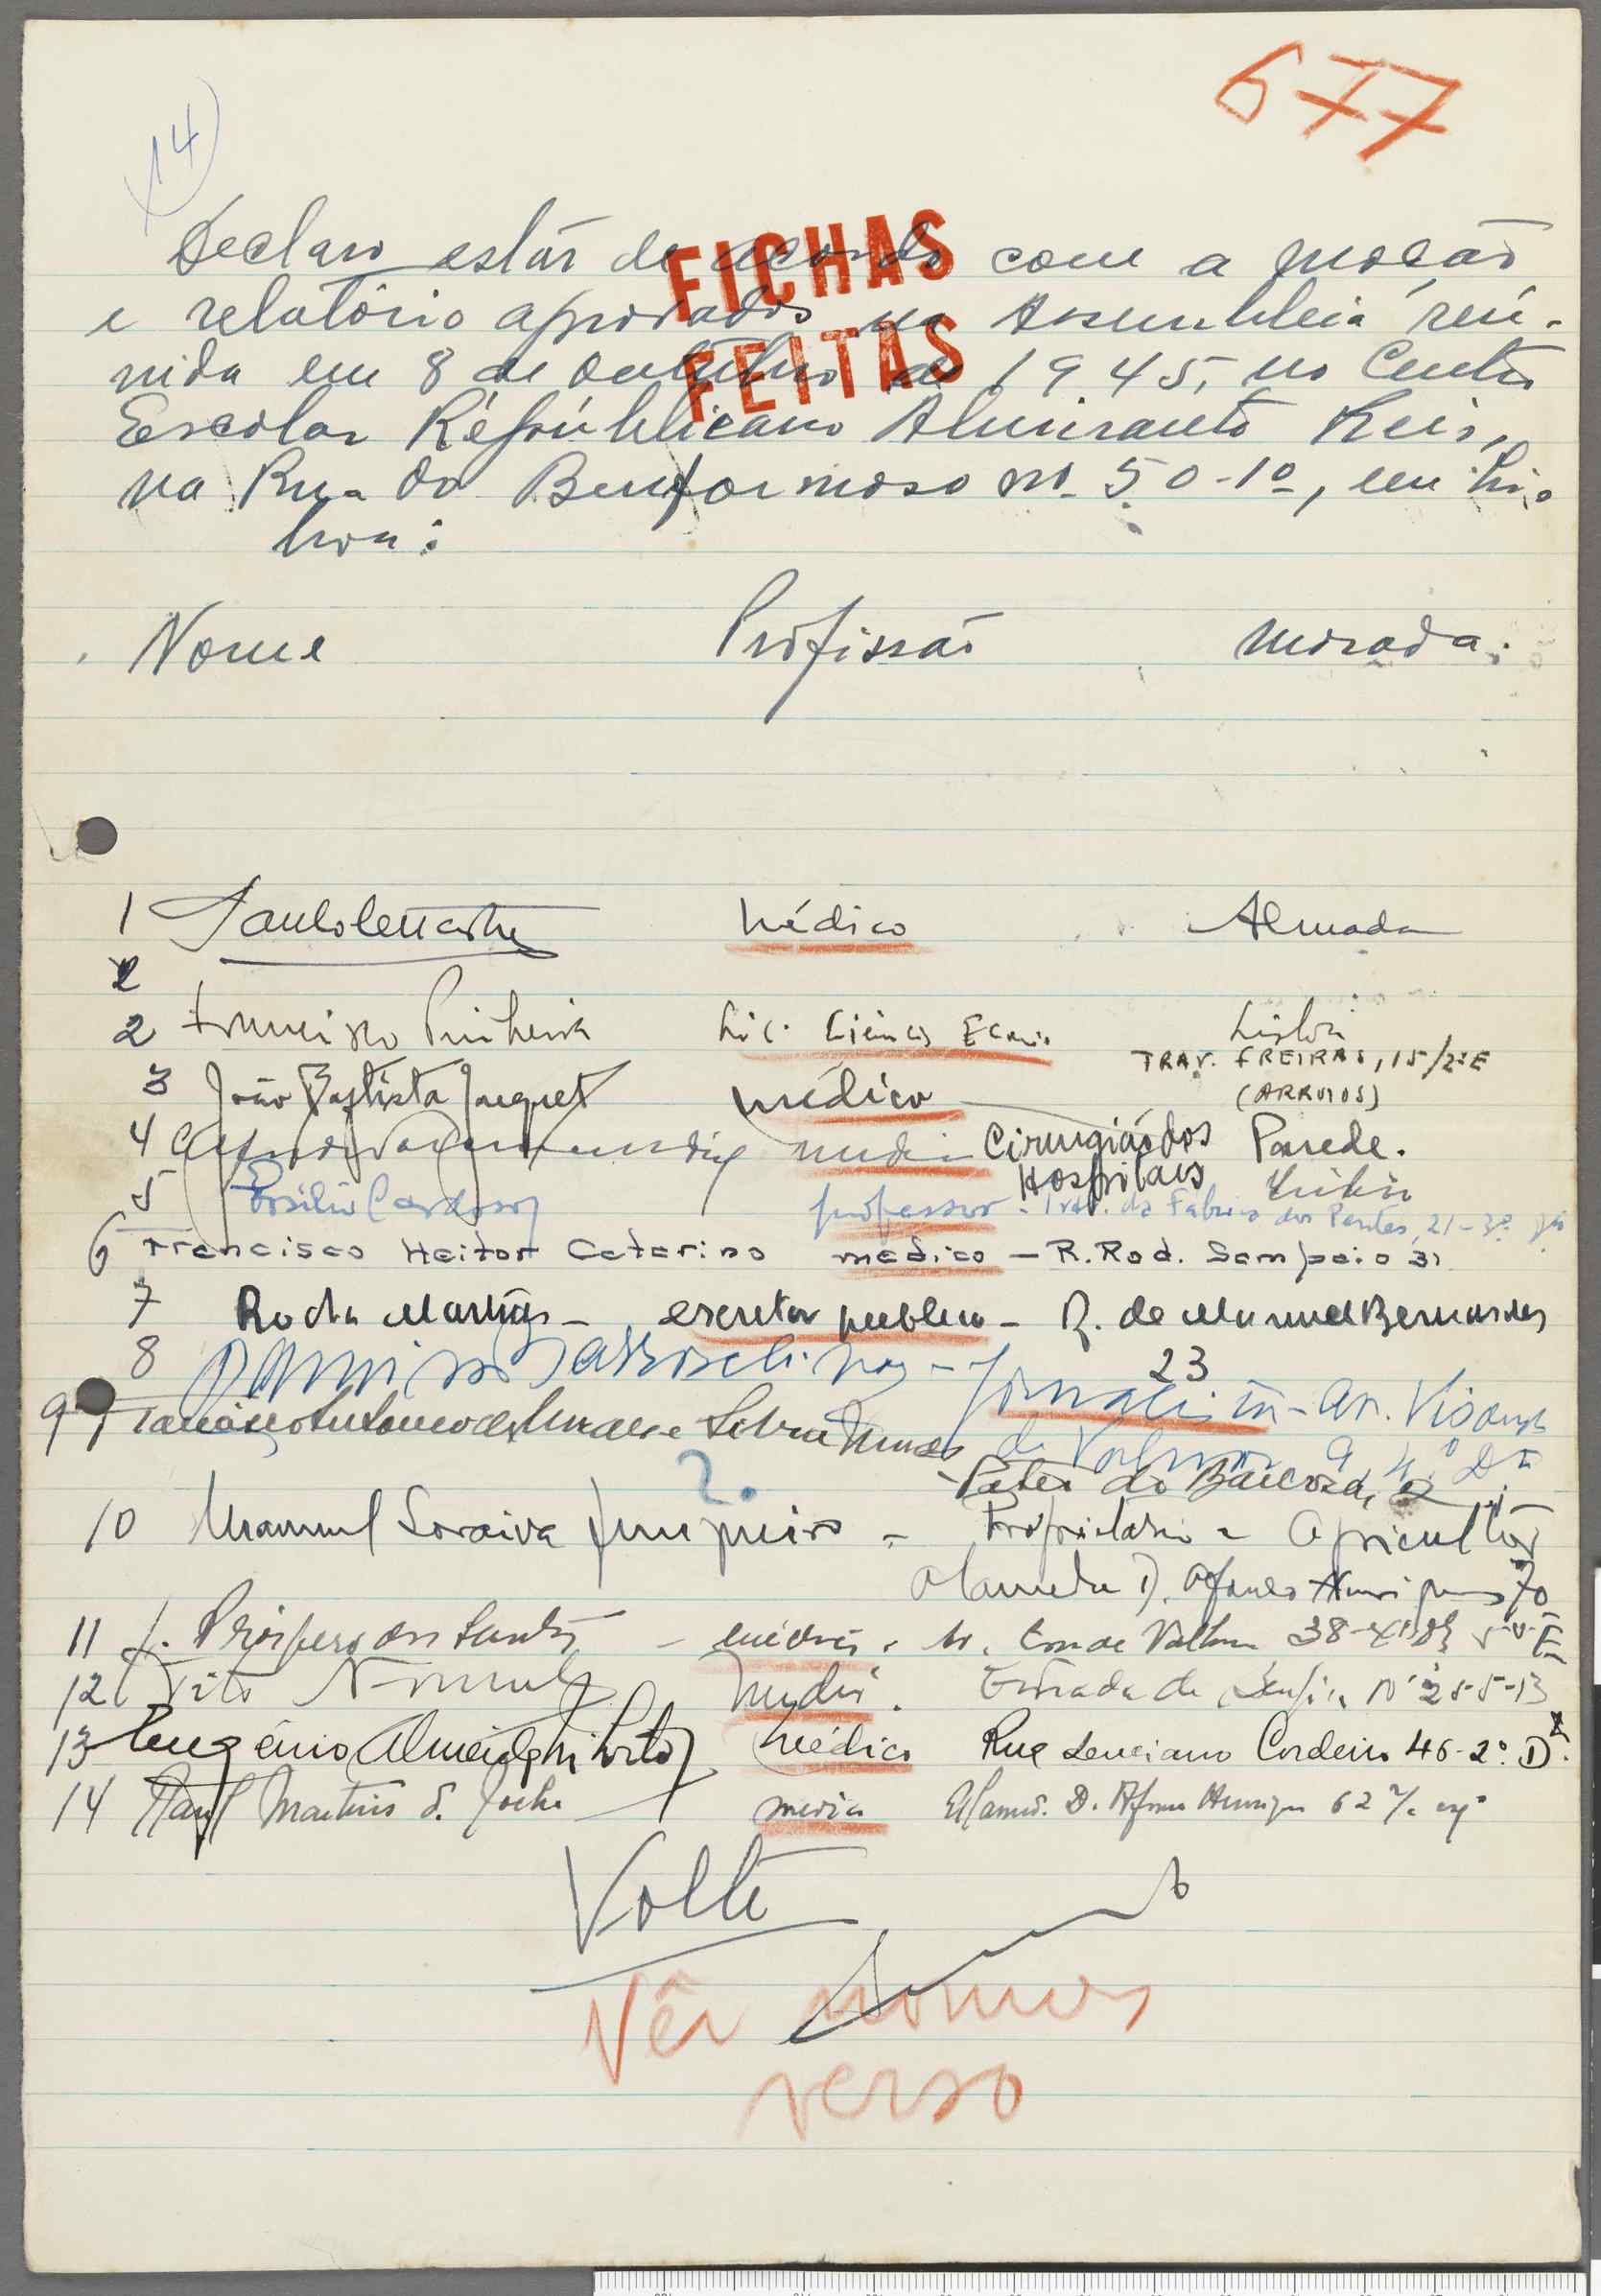 677
14
FICHAS
FEITAS
Declaro estár de acordo com a moção
e relatório aprovados na Assembleia reú-
nida em 8 de outubro de 1945, no Centro
Escolar Répúblicano Almirante Reis,
na Rua do Benformoso nº 50-1º, em Lis
boa:
Nome Profissão Morada.
1 Médico Almada
2
2 Francisco Pinheiro Lic. Ciências Econ. Lisboa
TRAV. FREIRAS, 15/2ºE
(ARROIOS)
3 João Baptista Jaquet médico
4 Cirurgião dos Hospitais Parede.
Lisboa
5 Basílio Cardoso professor - Trav. da Fabrica dos Pentes, 21-3º
6 Francisco Heitor Catarino medico - R. Rod. Sampaio 31
7 Rocha Martins - escritor publico - R. de Manuel Bernardes
23
8 jornalista - Av. Visconde
de Valmor 9 4º Dto
9
Páteo do Bairos, 2
?
10 Manuel Saraiva Junqueiro - Proprietario e Agricultor
Alameda D. Afonso Henriques 70
11 J. Prospero dos Santos - médico - 38-
12 Tito Médico. Estrada de Benfica Nº
13 Eugénio Almeida Médico Rua Luciano Cordeiro 46-2º D.
14 Raul Martins d. Rocha medico Alamed. D. Afonso Henriques 62
Volte
Vêr nomes
verso